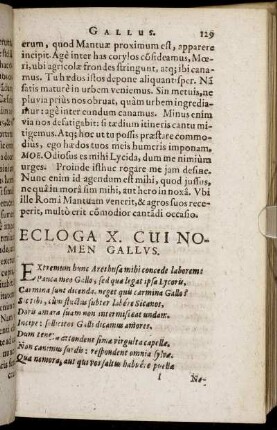 GALLUS. 129
erum, quod Mantuæ proximum est, apparere
incipit. Agè inter has corylos cōsideamus, Mœ-
ri, ubi agricolæ frondes stringunt, atq; ibi cana-
mus. Tu hædos istos depone aliquantisper. Nā
satis maturè in urbem veniemus. Sin metuis, ne
pluvia priùs nos obruat, quàm urbem ingredia-
mur: agè inter eundum canamus. Minus enim
via nos defatigabit: si tædium itineris cantu mi-
tigemus. Atq; hoc ut tu possis præstare commo-
dius, ego hædos tuos meis humeris imponam.
MOE. Odiosus es mihi Lycida, dum me nimium
urges. Proinde istthuc rogare me jam desine.
Nunc enim id agendum est mihi, quod jussus,
ne quā in morā sim mihi, aut hero in noxâ. Vbi
ille Romā Mantuam venerit, & agros suos rece-
perit, multò erit cōmodior cantādi occasio.
ECLOGA X. CUI NO-
MEN GALLVS.
EXtremum hunc Arethusa mihi concede laborem:
Pauca meo Gallo, sed quæ legat ipsa Lycoris,
Carmina sunt dicenda. neget quis carmina Gallo?
Sic tibi, cùm fluctus subter labêre Sicanos,
Doris amara suam non intermisceat undam.
Incipe: sollicitos Galli dicamus amores,
Dum tenera attondent simæ virgulta capellæ.
Non canimus surdis: respondent omnia sylvæ.
Quæ nemora, aut qui vos saltus habuêre puellæ
I Na-